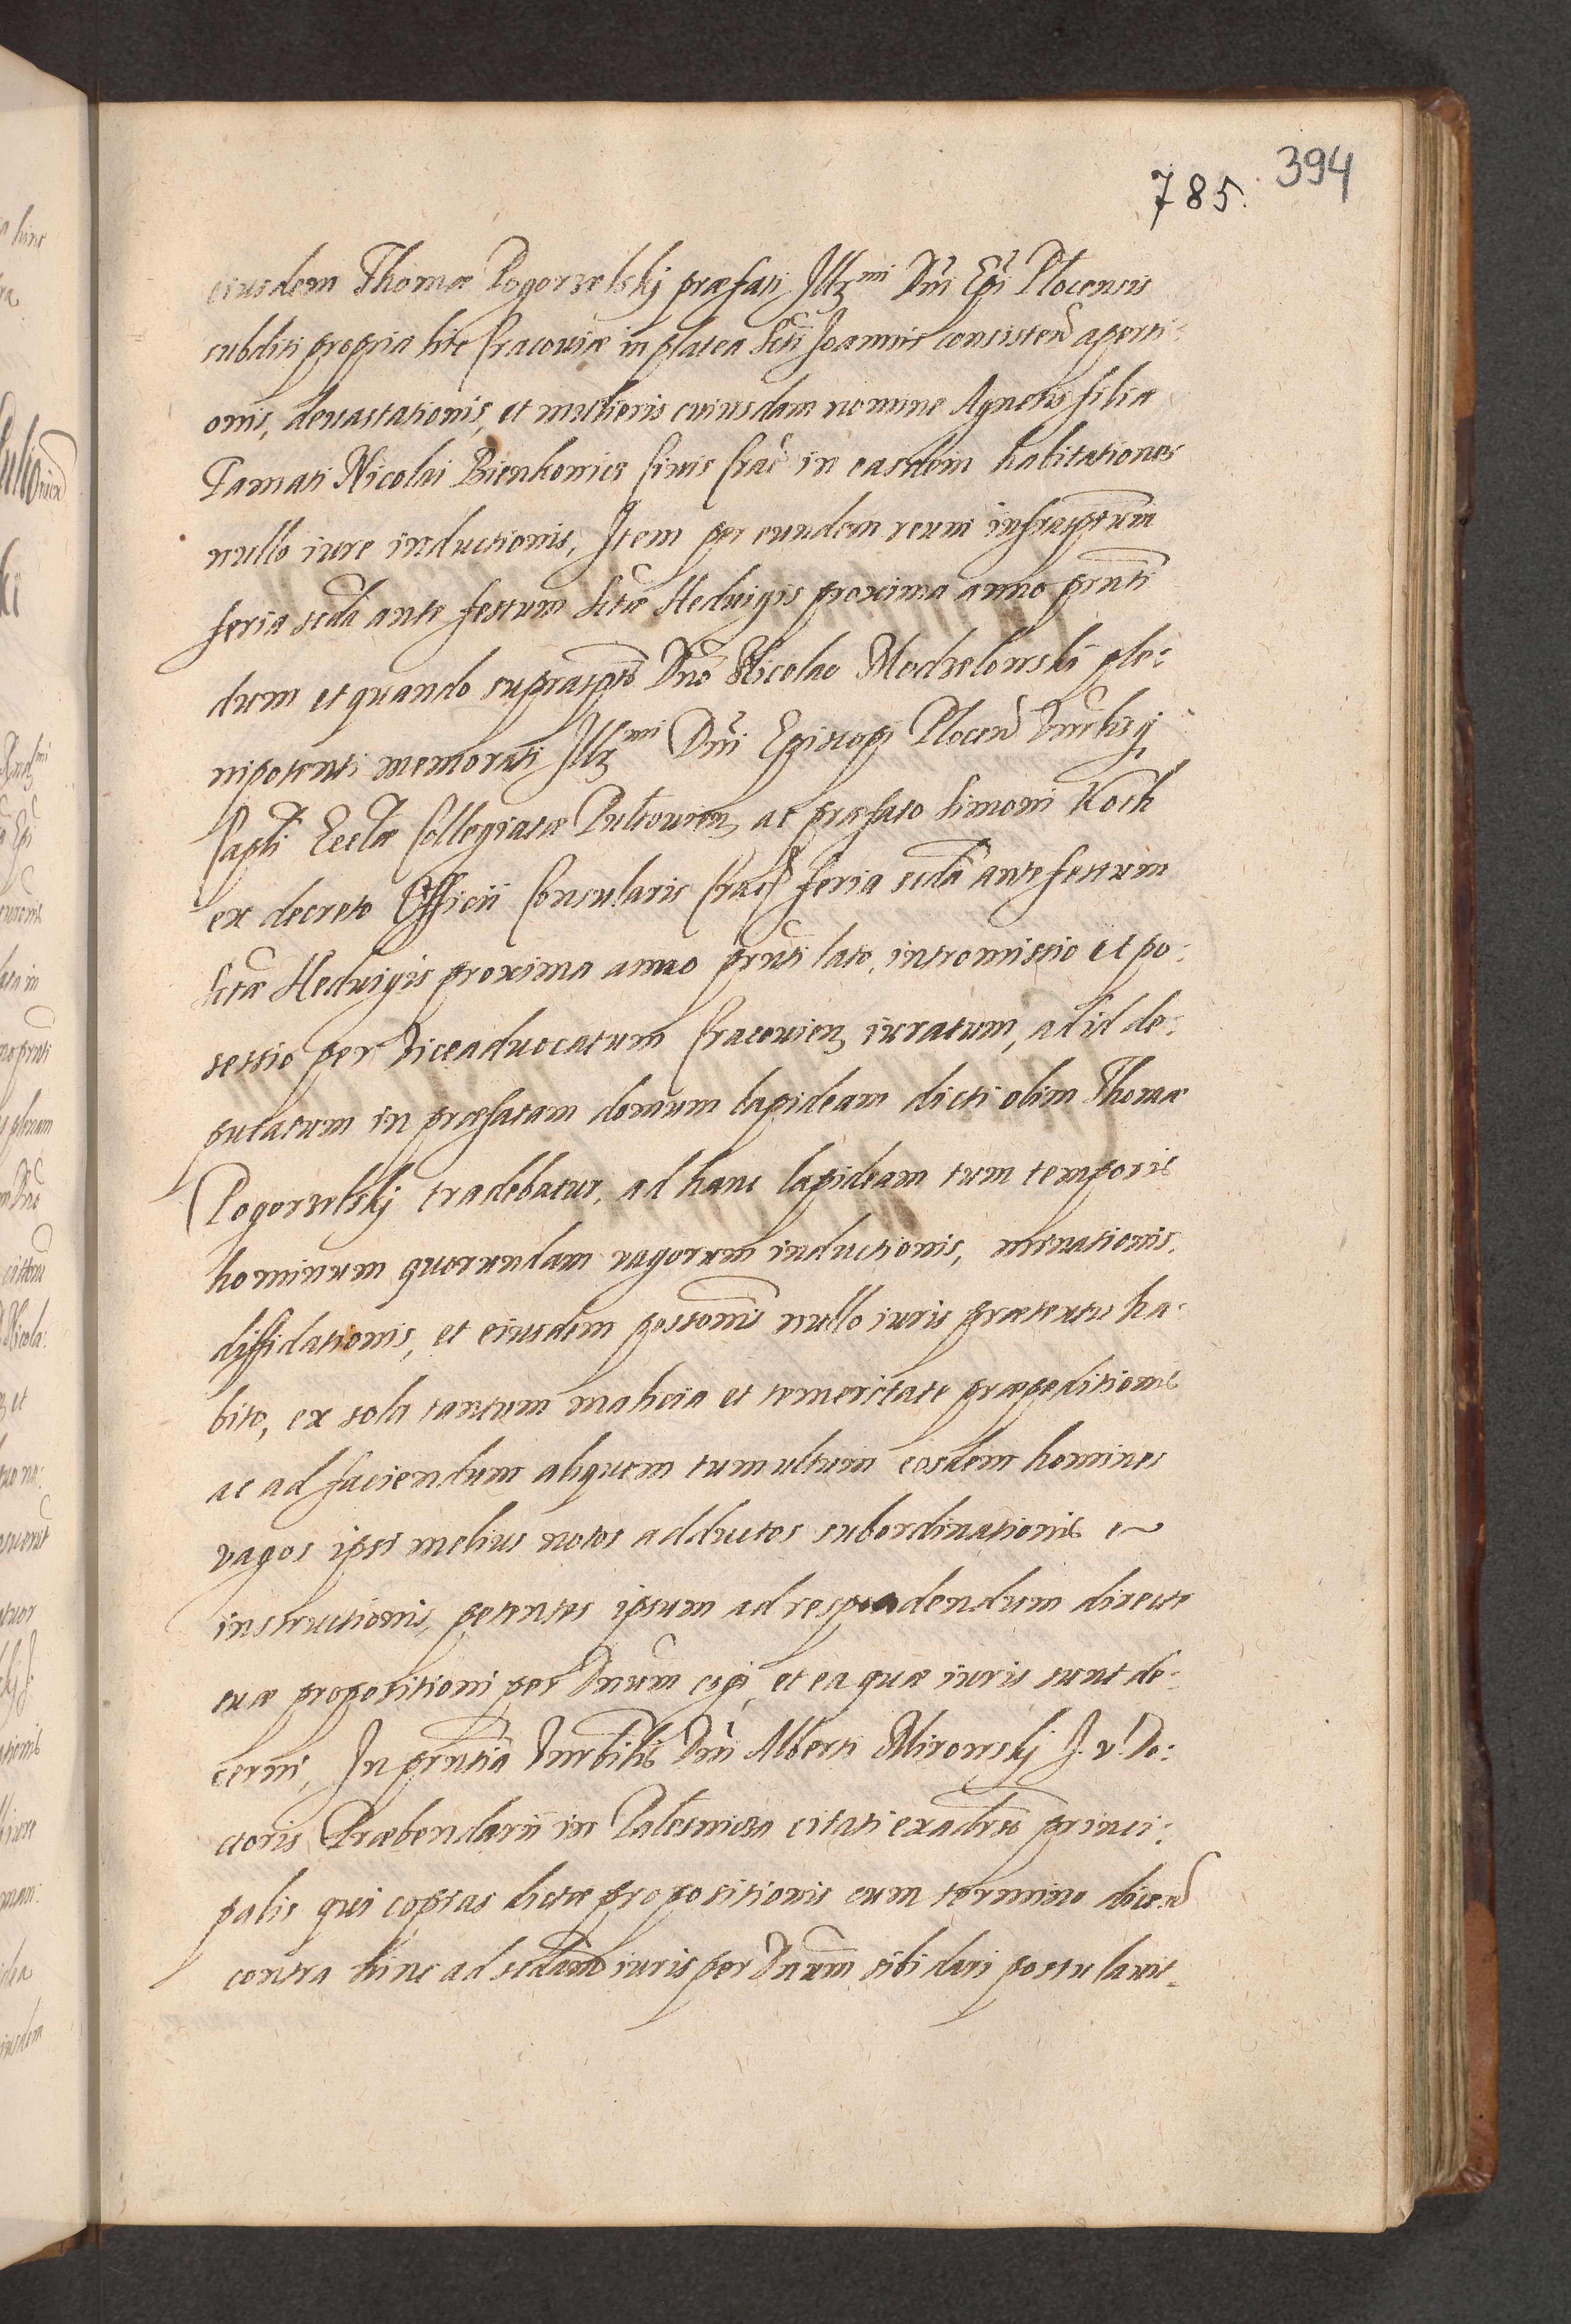 394
785.
eiusdem Thomæ Pogorzelskj præfati Illmi Dni Epi Plocensis
subditi propria hic Cracouiæ in platea Scti Joannis consisten aperti:
onis, deuastationis, et mulieris cuiusdam nomine Agnetis filiæ
Famati Nicolai Bienkowicz Ciuis Crac in easdem habitationes
nullo iure inductionis, Item per eundem reum infrascptum
feria scda ante festum Sctæ Hedvigis proxima anno prnti
dum et quando suprascpto Dno Nicolao Modzelowski ple:
nipotenti memorati Illmi Dni Episcopi Plocen Vnrlisq
Capli Ecclæ Collegiatæ Pultouien, ac præfato Simoni Koch
ex decreto Officii Consularis Crac feria scda ante festum
Sctæ Hedvigis proxima anno prnti lato, intromissio et po:
sessio per Viceaduocatum Cracouien iuratum, ad id de:
putatum in præfatam domum lapideam dicti olim Thomæ
Pogorzelskj tradebatur, ad hanc lapideam tum temporis
hominum quorundam vagorum inductionis, minationis,
diffidationis, et eiusdem possonis nullo iuris prætextu ha:
bito, ex sola tantum malicia et temeritate præpeditionis
ac ad faciendum aliquem tumultum eosdem homines
vagos ipsi melius notos adductos subordinationis e~
instructionis, petentes ipsum ad respondendum directe
suæ propositioni per Dnum cogi, et ea quæ iuris sunt de:
cerni, In prntia Vnrbilis Dni Alberti Mirowskj J. v. Do:
ctoris Præbendarii in Palesnicza citati exadrso princi:
palis qui copias dictæ propositionis cum termino dicen
contra hinc ad scdam iuris per Dnum sibi dari postulauit.